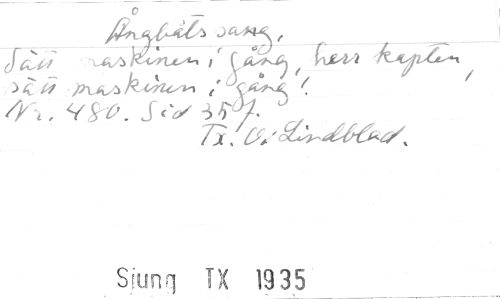 Ångbåtssang,
Sätt maskinen i gång, herr kapten,
sätt maskinen i gång!
Nr. 480. Sid 35 f.
Tx. O. Lindblad.
Sjung TX 1935